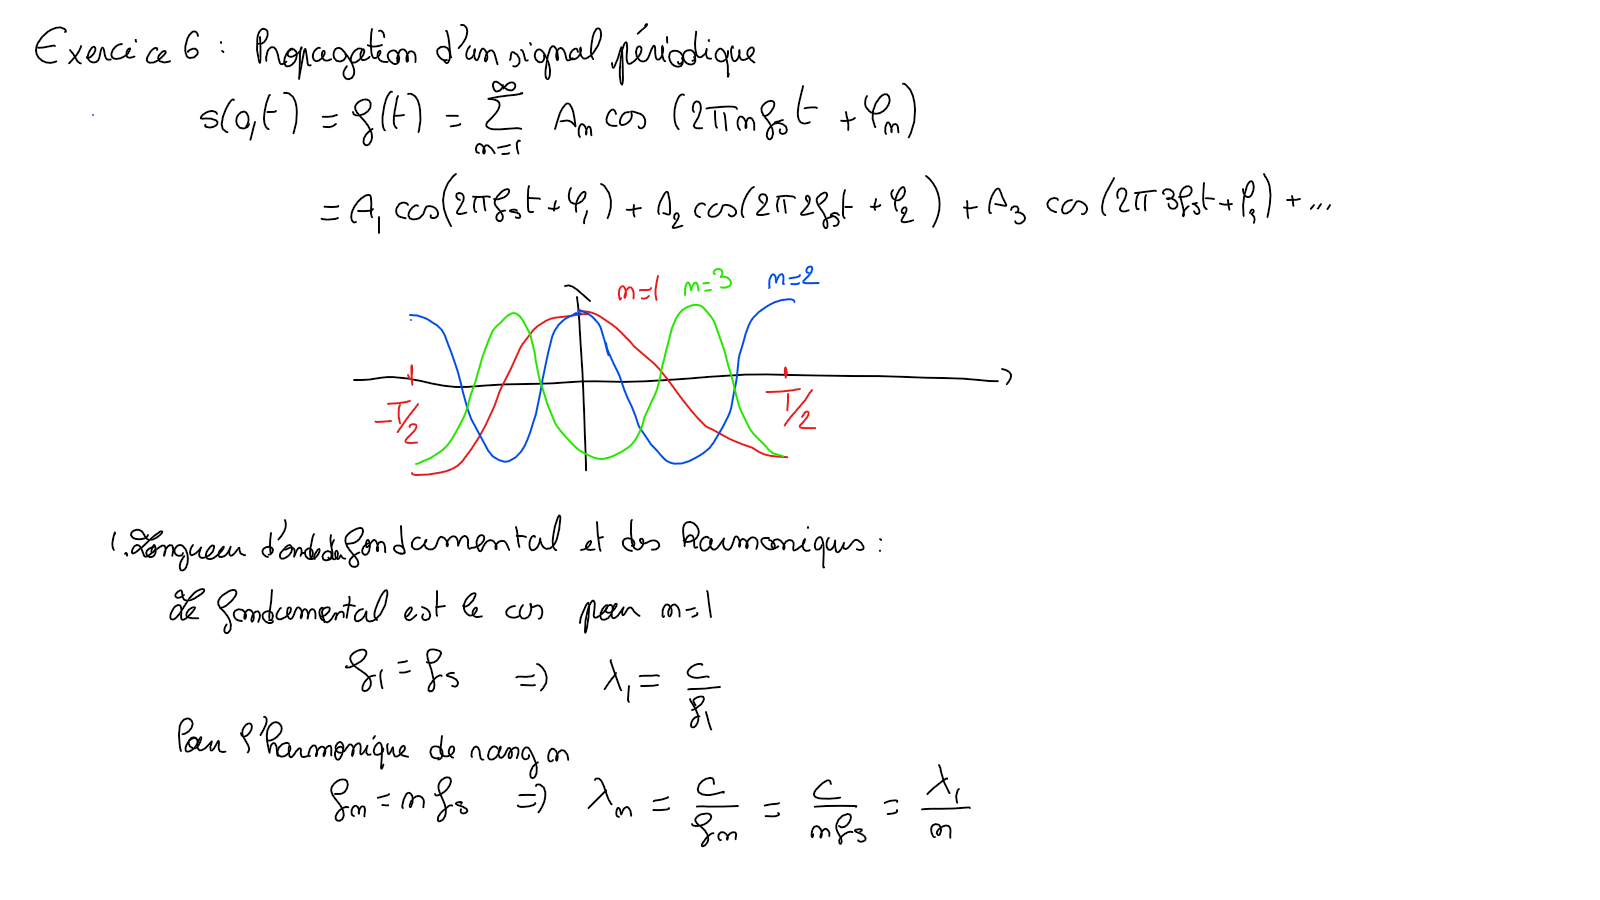 Exercice 6 : Propagation d'un signal périodique
s(0,t) = f(t) = ∑_{n=1}^{∞} A_n cos (2πn f_s t + φ_n)
= A_1 cos(2π f_s t + φ_1) + A_2 cos(2π 2 f_s t + φ_2) + A_3 cos (2π 3 f_s t + φ_3) + ...
n=1 n=3 n=2
-T/2 T/2
1. Longueur d'onde du fondamental et des harmoniques :
Le fondamental est le cas pour n=1
f_1 = f_s => λ_1 = c/f_1
Pour l'harmonique de rang n
f_n = n f_s => λ_n = c/f_n = c/(n f_s) = λ_1/n